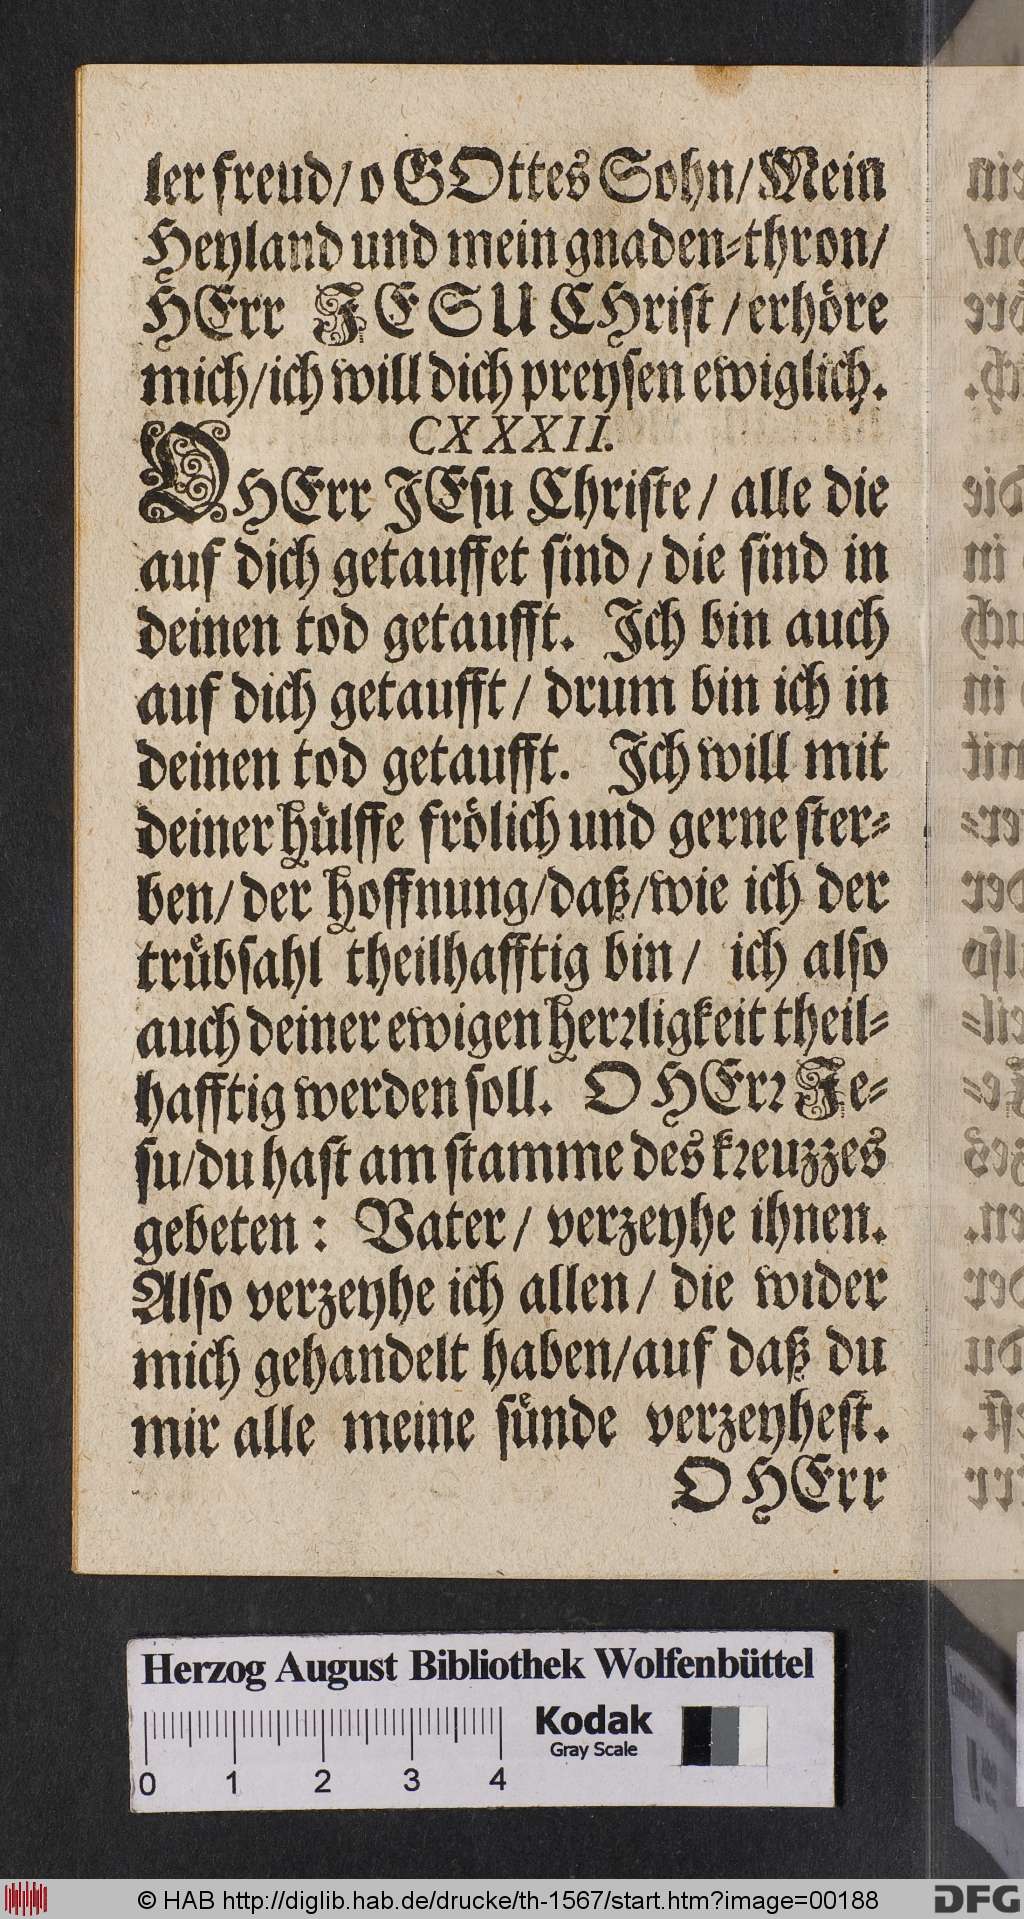 ler freud/ o GOttes Sohn/ Mein
Heyland und mein gnaden-thron/
HErr JESU CHrist / erhöre
mich/ ich will dich preysen ewiglich.
CXXXII.
O HErr JEsu Christe/ alle die
auf dich getauffet sind/ die sind in
deinen tod getaufft. Ich bin auch
auf dich getaufft/ drum bin ich in
deinen tod getaufft. Ich will mit
deiner hülffe frölich und gerne ster-
ben/ der hoffnung/ daß/ wie ich der
trübsahl theilhafftig bin/ ich also
auch deiner ewigen herrligkeit theil-
hafftig werden soll. O HErr Je-
su/ du hast am stamme des kreuzzes
gebeten: Vater/ verzeyhe ihnen.
Also verzeyhe ich allen/ die wider
mich gehandelt haben/ auf daß du
mir alle meine sünde verzeyhest.
O HErr
Herzog August Bibliothek Wolfenbüttel
Kodak
Gray Scale
0 1 2 3 4
© HAB http://diglib.hab.de/drucke/th-1567/start.htm?image=00188
DFG